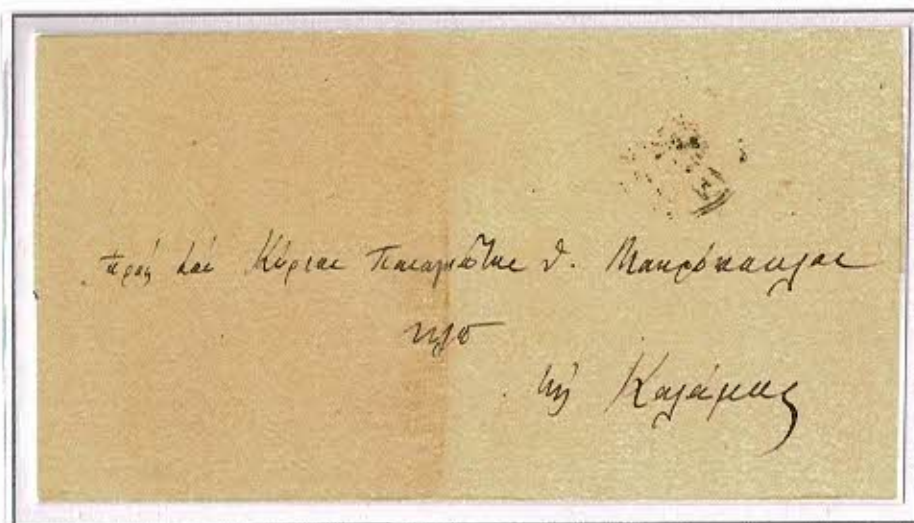 πρὸς τὸν Κύριον Παναγιώτην Θ. Μαυρόπουλον
κλπ
εἰς Καλάμας